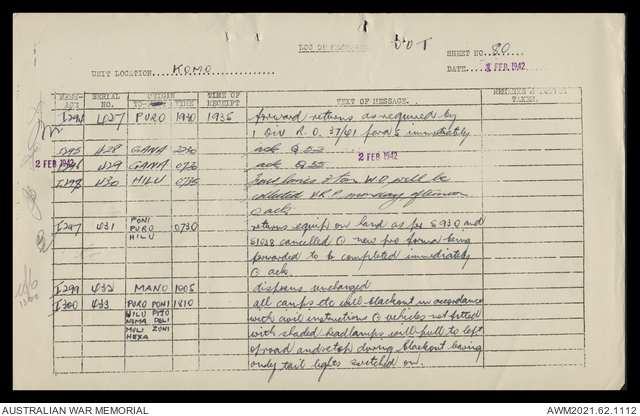 LOG OF MESSAGES OUT
SHEET NO. 80
UNIT LOCATION KOMO
DATE 1 FEB 1942
MESSAGE SERIAL NO. ORIGIN TO TIME TIME OF RECEIPT TEXT OF MESSAGE. REMARKS & ACTION TAKEN.
427 PURO 1930 1935 forward returns as required by
1 Div R.O. 37/41 para 5 immediately
I295 428 GANA 2230 ack Q 52
2 FEB 1942 2 FEB 1942
429 GANA 0730 ack Q 55
I298 430 HILU 0735 3 ton W.D. will be
collected V.R.P monday afternoon
ack
I297 431 PONI PURO HILU 0730 returns equip on hand as per S930 and
S1028 cancelled @ new pro forma being
forwarded to be completed immediately
@ ack
I299 432 MANO 1005 dispons unchanged
I300 433 PURO PONI 1810 all camps etc will blackout in accordance
HILU PITO with civil instructions @ vehicles not fitted
NOMA DELI
MILI ZONI with shaded headlamps will pull to left
HEXA of road and stop during blackout having
only tail lights switched on.
AUSTRALIAN WAR MEMORIAL
AWM2021.62.1112